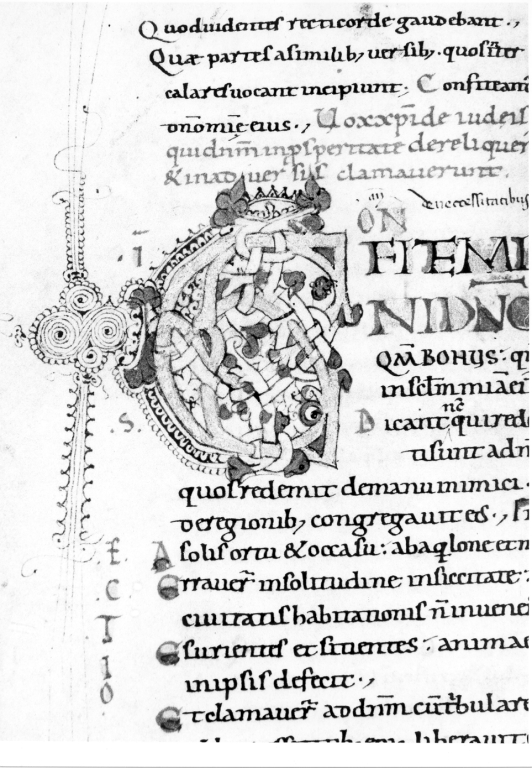 Quoduidentes recticorde gaudebant.,
Quæ partes asimilib; uersib; quositer
calaresuocant incipiunt. Confitemi
Uoxxp̄i de iudeis
quidn̄m inp̱speritate derelinquer
& inaduersis clamauerunt.
denecessitatibus
C ON
FITEMI
NIDNO
QM̄ BONUS: q
inscl̄m miā ei
Dicant nc̄ quired
tisunt adn̄
quos redemit demanu inimici.
deregionib; congregauit eos.,
A solis ortu & occasu: abaq̱lone et m
Errauer̄ insolitudine insiccitate:
ciuitatis habitationis n̄ inuene
Esurientes et sitientes: anima
inipsis defecit.,
Et clamauer̄ addn̄m
liberauit
i
S.
CTIO